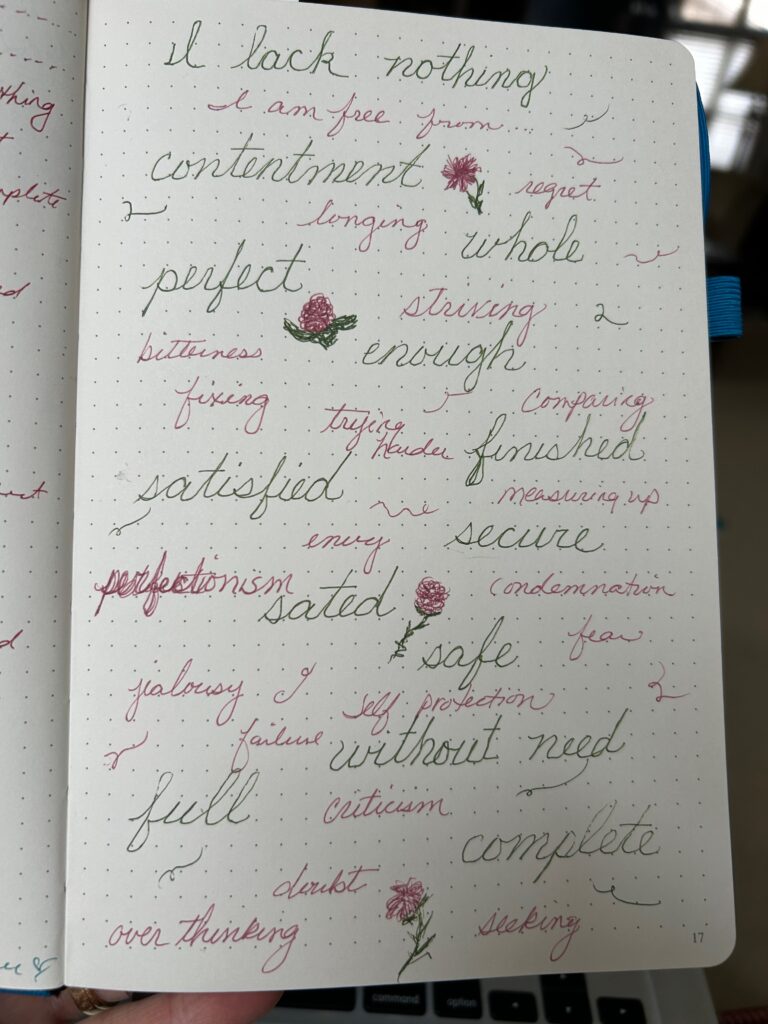 I lack nothing
I am free from...
contentment
regret
longing
whole
perfect
striving
bitterness
enough
fixing
comparing
trying
harder
finished
satisfied
measuring up
envy
secure
perfectionism
sated
condemnation
safe
fear
jealousy
self protection
failure
without need
full
criticism
complete
doubt
over thinking
seeking
17
command
option